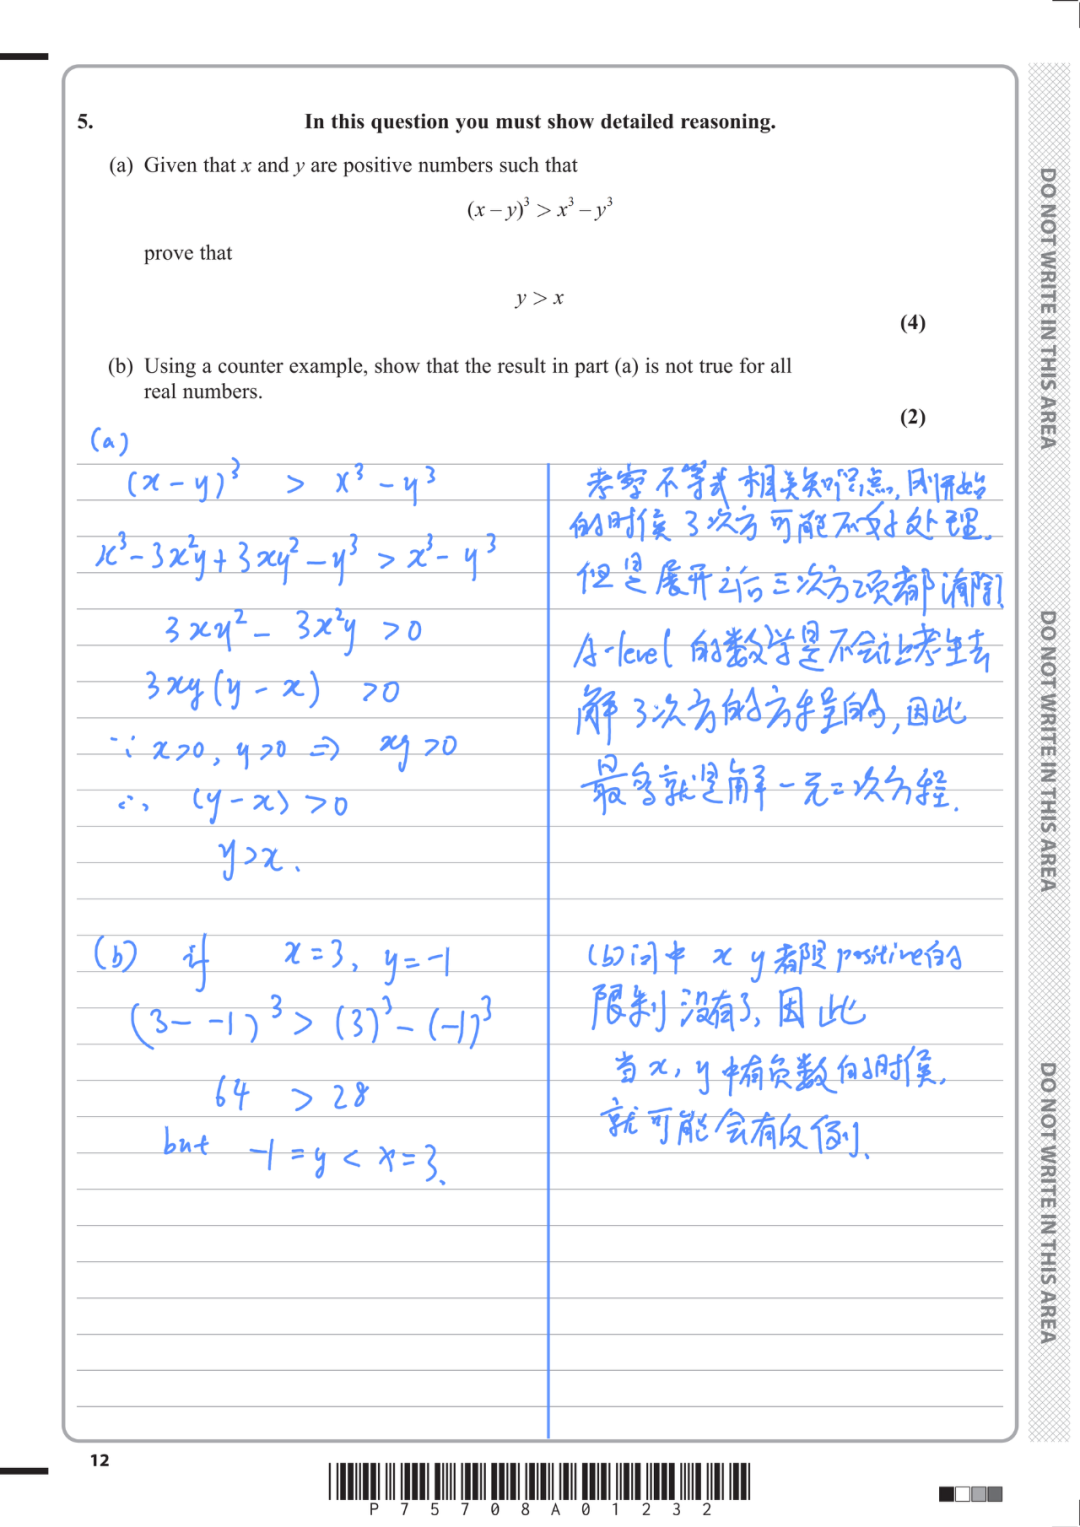 5.
In this question you must show detailed reasoning.
(a) Given that x and y are positive numbers such that
(x – y)³ > x³ – y³
prove that
y > x
(4)
(b) Using a counter example, show that the result in part (a) is not true for all
real numbers.
(2)
(a)
(x-y)³ > x³-y³
x³-3x²y+3xy²-y³ > x³-y³
3xy²- 3x²y >0
3xy(y-x) >0
∵ x>0, y>0 ⇒ xy>0
∴ (y-x)>0
y>x.
考察不等式相关知识点,刚开始
的时候3次方可能不好处理.
但是展开之后三次方项都消除!
A-level的数学是不会让考生去
解3次方的方程的,因此
最多就是解一元二次方程.
(b) if x=3, y=-1
(3--1)³ > (3)³-(-1)³
64 > 28
but -1=y < x=3.
(b)问中 x y 都是positive的
限制没有了,因此
当x,y中有负数的时候,
就可能会有反例.
12
P75708A01232
DO NOT WRITE IN THIS AREA
DO NOT WRITE IN THIS AREA
DO NOT WRITE IN THIS AREA